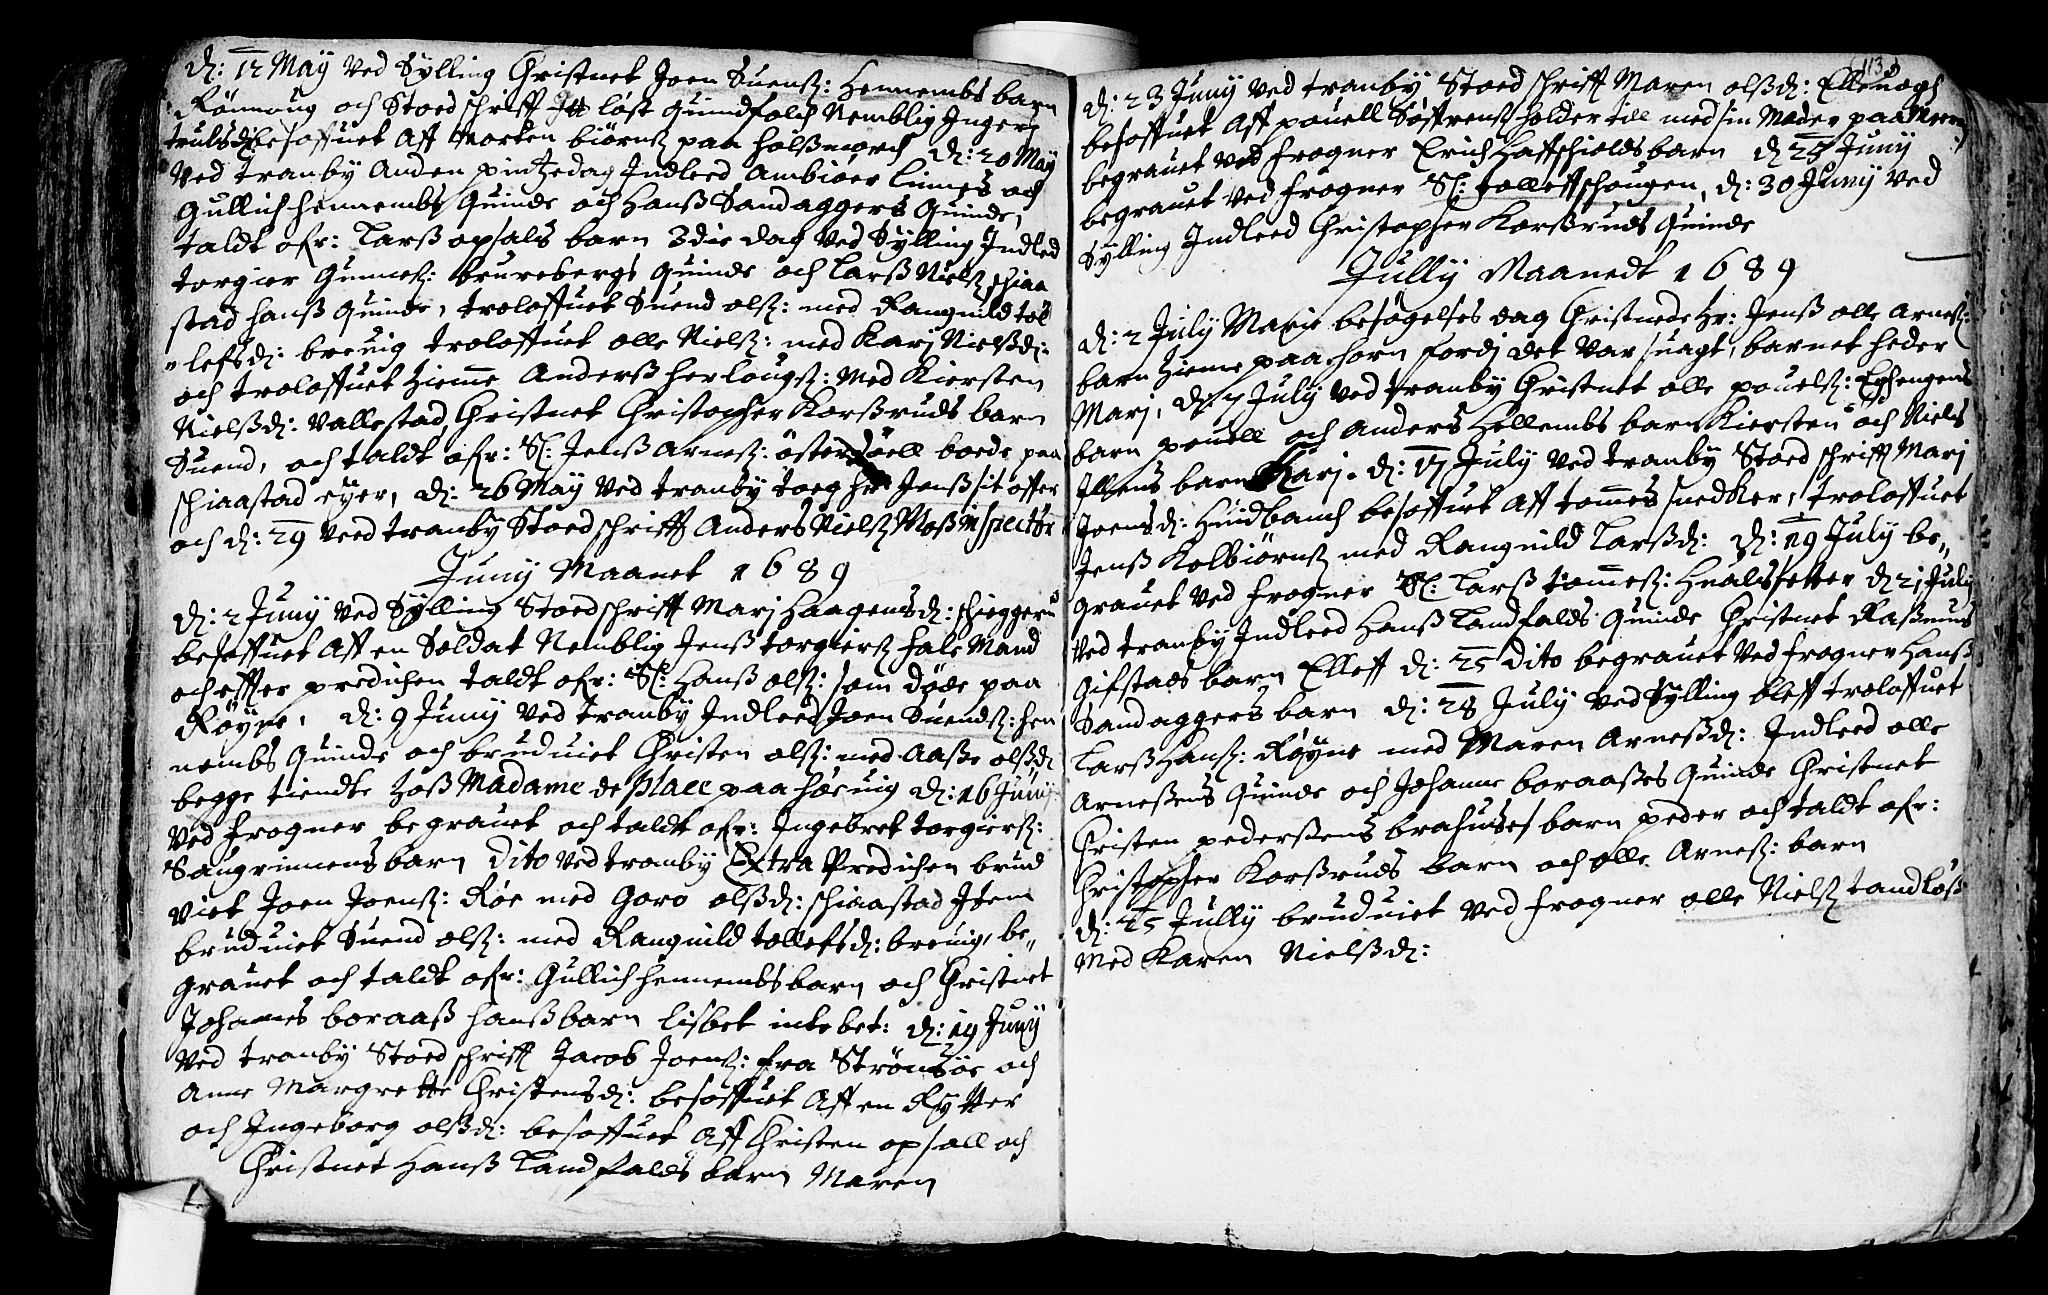 d: 12 Maÿ Ved Sÿlling Christnet Joen Suensz: Hennembs barn
Rönnoug och Stoed schrifft Itt löst Quindfolch Nemblig Inger
trulsd: besoffuet Aff Morten biörnsz paa holßmorch d: 20 Maÿ
Ved tranby Anden pintzedag Indleed Ambiör linnes och
Gullich hennembs Quinde och Hanß Sandaggers Quinde,
taldt ofr: Larß opsals barn 3die dag Ved Sÿlling Indled
torgier Gunnesz: brurebergs Quinde och Larß Nielsz schiaa
stad hanß Quinde, troloffuet Suend olsz: med Rangnild tol
lefsd: breuig troloffuet olle Nielsz: med Karj Nielßd:
och troloffuet Hiemme Anderß herlougsz: Med Kiersten
Nielßd: Vallestad, Christnet Christopher Korßruds barn
Suend, och taldt ofr: Sl: Jenß Arnesz: österdöell boede paa
schiaastad eÿer, d: 26 Maÿ Ved tranby toeg hr Jenß sit offer
och d: 29 Veed tranby Stoed schrifft Anders Nielsz Moß Inspecktör
Junij Maanet 1689
d: 2 Junij Ved Sÿlling Stoed schrifft Marj Haagensd: schieggerud
besoffuet Aff en Soldat Nemblig Jenß torgiersz hals Mand
och effter predichen taldt ofr: Sl: Hanß olsz: som döde paa
Röyne, d: 9 Junij Ved tranby Indleed Joen Suendsz: hen
nembs Quinde och bruduiet Christen olsz: med Aaße olßd:
begge tiendte Hoß Madame de place paa höeuig d: 16 Junij
Ved frogner begrauet och taldt ofr: Ingebret torgiersz:
Saugrinnens barn Dito Ved tranby Extra Predichen brud
Viet Joen Joensz: Röe med Goro olßd: schiaastad Item
bruduiet Suend olsz: med Rangnild tollefsd: breuig, be„
grauet och taldt ofr: Gullich hennembs barn och Christnet
Johannes boraaß hanß barn lisbet intebet: d: 19 Junij
Ved tranby Stoed schrifft Jacob Joensz: fra Strömsöe och
Anne Margrette Christensd: besoffuet Aff en Rytter
och Ingeborg olßd: besoffuet Aff Christen opsall och
Christnet Hanß Landfalds barn Maren
113
d: 23 Junij Ved tranby Stoed schrifft Maren olßd:
besoffuet Aff pouell Söffrensz holder till med sin Moder paa
begrauet Ved frogner Erich Haffschiolds barn d 25 Junij
begrauet Ved frogner Sl: tolleff schougen, d: 30 Junij Ved
Sÿlling Indleed Christopher Korßruds Quinde
Jullij Maanedt 1689
d: 2 Julij Mariæ besögelses dag Christnede Hr: Jenß olle Arnesz:
barn Hieme paa horn fordj det Var suagt, barnet heder
Marj, d: 7 Julij Ved tranby Christnet olle pouelsz: Eghengens
barn pouell och Anders Hellembs barn Kiersten och Niels
Illens barn Karj. d: 17 Julij Ved tranby Stoed schrifft Marj
Joensd: Huidbanch besoffuet Aff tommes snedker, troloffuet
Jenß Kolbiörnsz med Rangnild Larßd: d: 19 Julij be„
grauet Ved frogner Sl: Larß tommesz: Hualssetter d 21 Julij
Ved tranby Indleed Hanß Landfalds Quinde Christnet Raßmus
Gifstads barn Elleff d: 25 Dito begrauet Ved frogner Hanß
Sandaggers barn d: 28 Julij Ved Sÿlling bleff troloffuet
Larß Hansz: Röyne med Maren Arneßd: Indleed olle
Arneßens Quinde och Johanne boraaßes Quinde Christnet
Christen pederßens barn peder och taldt ofr:
Christopher Korßruds barn och olle Arnesz: barn
d: 25 Jullij bruduiet Ved frogner olle Nielsz tandlöß
Med Karen Nielßd: